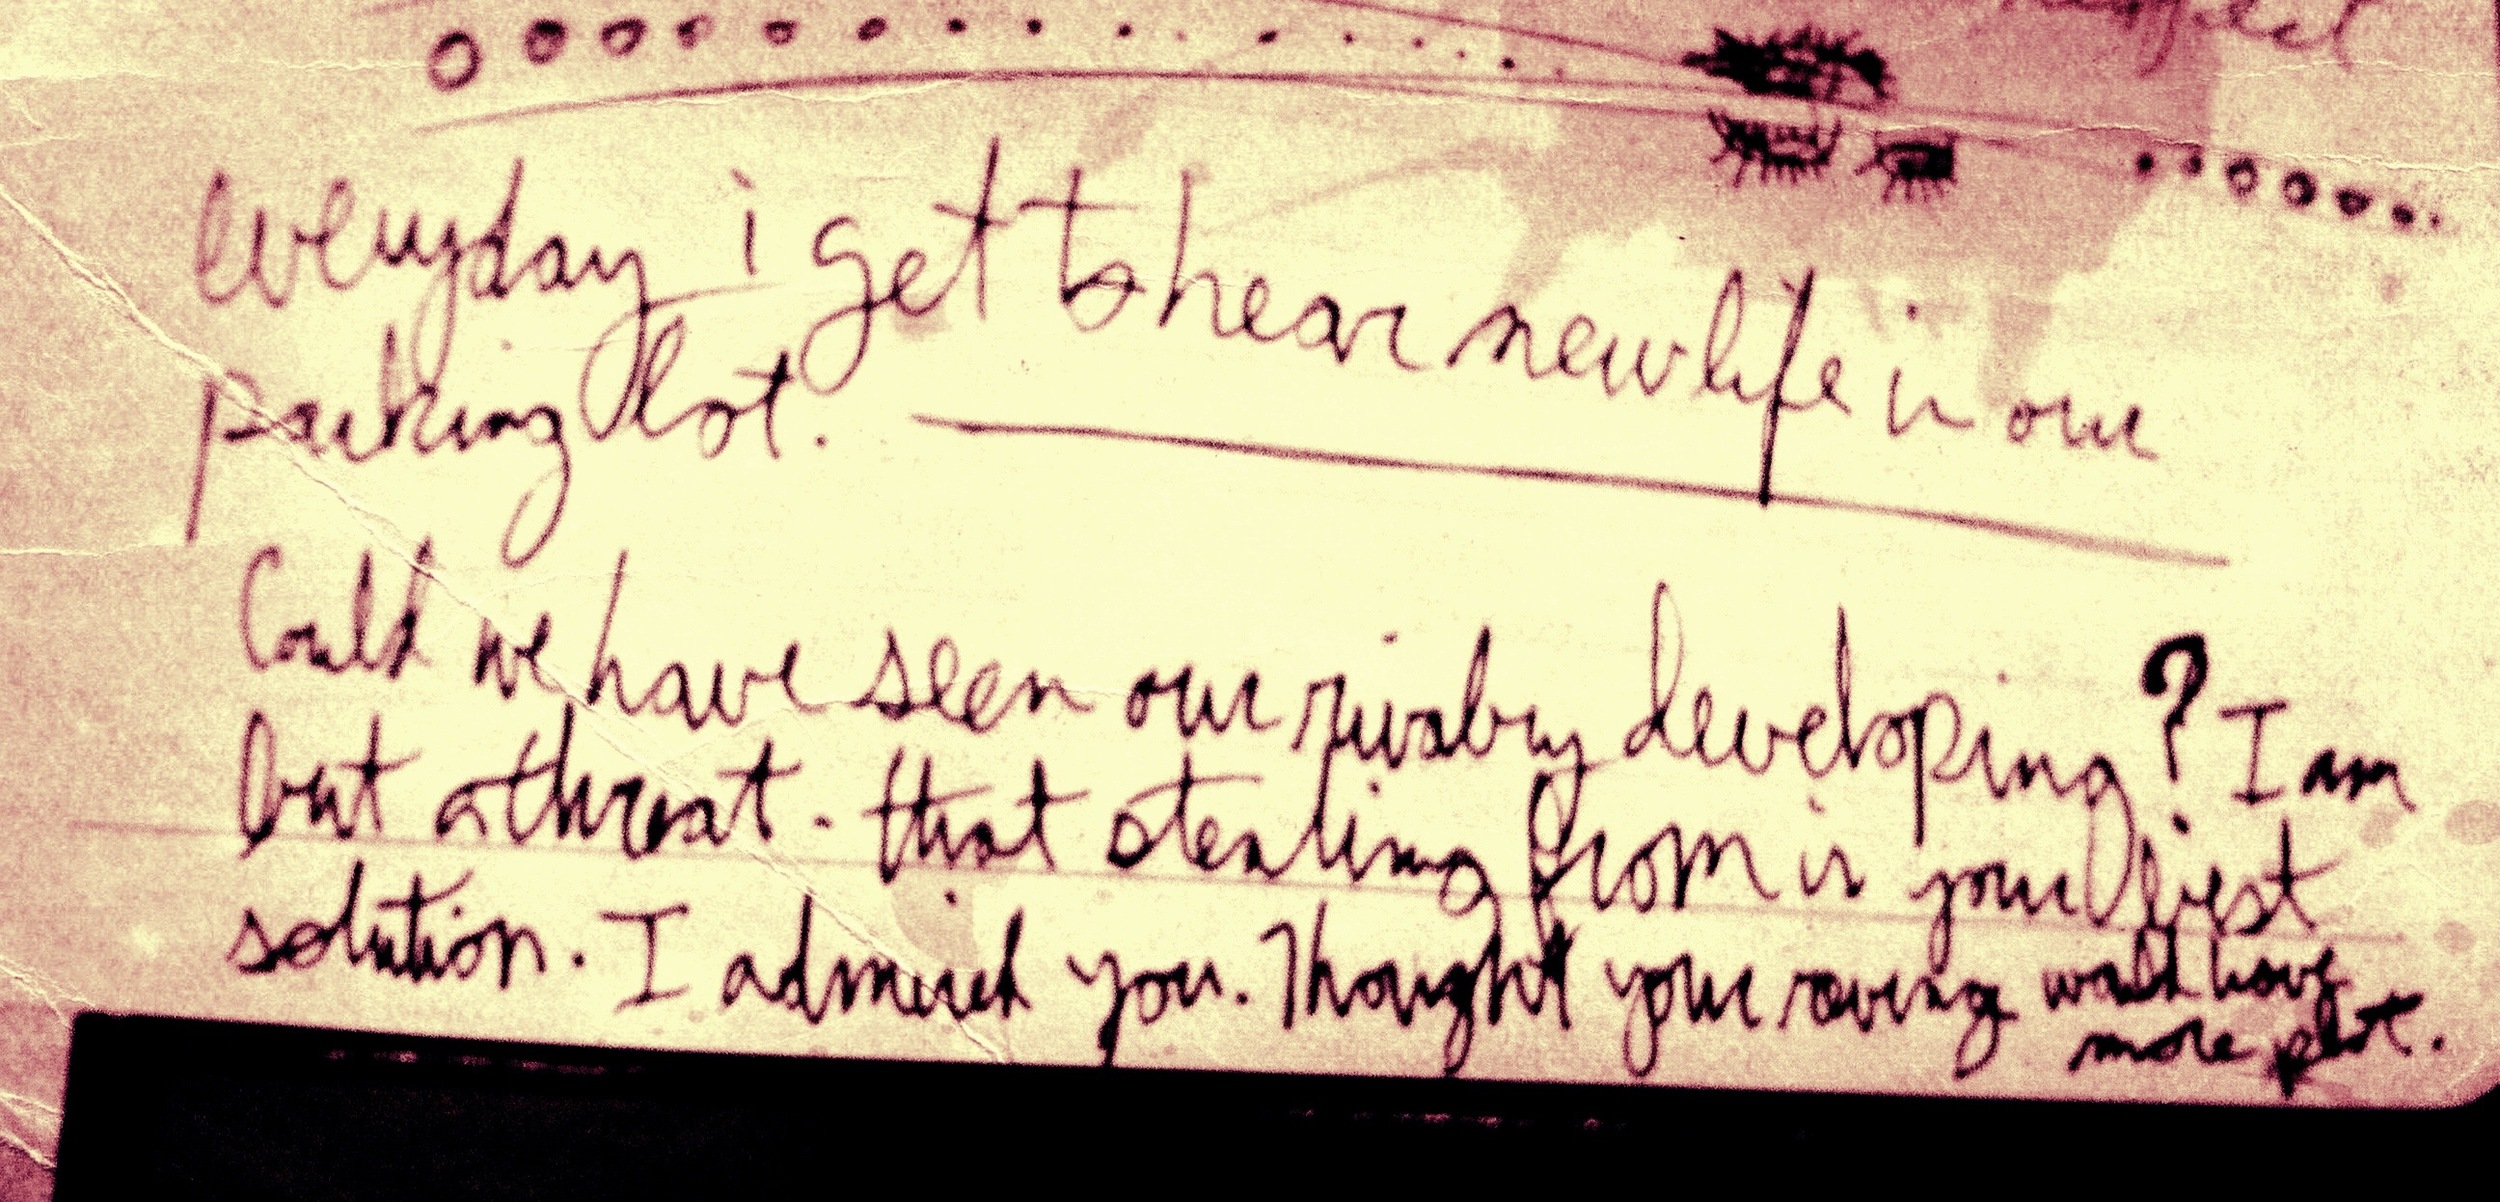 everyday i get to hear new life in our
parking lot.
Could we have seen our rivalry developing? I am
but a threat. that stealing from is your best
solution. I admired you. Thought your raving would have
more plot.